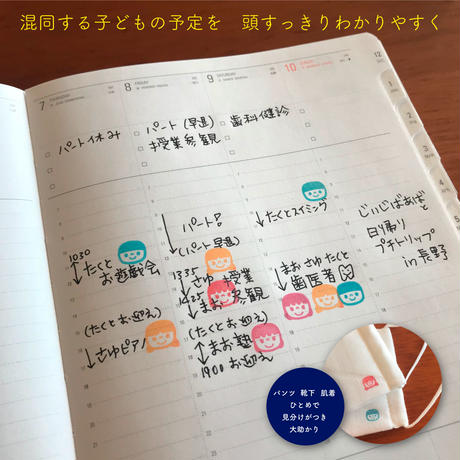 混同する子どもの予定を 頭すっきりわかりやすく
7
8
9
10
12
1
2
3
4
5
パート休み
パート(早退)
授業参観
歯科健診
1030
たくと
お遊戯会
(たくとお迎え)
さゆピアノ
パート?
(パート早退)
1335
さゆ授業
1425
まお参観
(たくとお迎え)
まお塾
1900 お迎え
たくとスイミング
まお さゆ たくと
歯医者
じぃじばぁばと
日帰り
プチトリップ
in 長野
パンツ 靴下 肌着
ひとめで
見分けがつき
大助かり